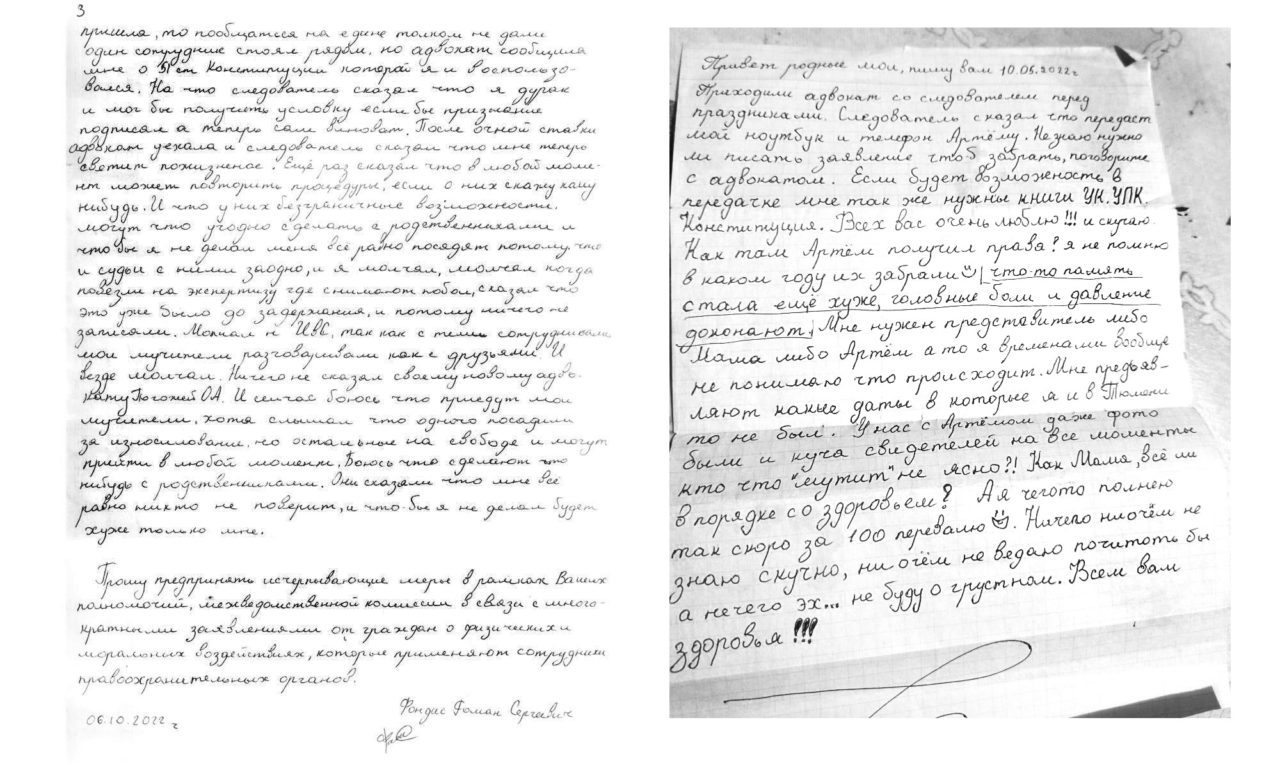 3
пришла, то пообщаться на едине толком не дали
один сотрудник стоял рядом, но адвокат сообщила
мне о 51 ст Конституции которой я и воспользо-
вался. На что следователь сказал что я дурак
и мог бы получить условку если бы признание
подписал а теперь сам виноват. После очной ставки
адвокат уехала и следователь сказал что мне теперь
светит пожизненое. Ещё раз сказал что в любой моме-
нт может повторить процедуры, если о них скажу кому
нибудь. И что у них безграничные возможности.
могут что угодно сделать с родственниками и
что бы я не делал меня всё равно посадят потому что
и судьи с ними заодно, и я молчал, молчал когда
повезли на экспертизу где снимают побои, сказал что
это уже было до задержания, и потому ничего не
записали. Молчал и ИВС, так как с теми сотрудниками
мои мучители разговаривали как с друзьями. И
везде молчал. Ничего не сказал своему новому адво-
кату Погожей О.А. И сейчас боюсь что приедут мои
мучители, хотя слышал что одного посадили
за износилование, но остальные на свободе и могут
прийти в любой момент. Боюсь что сделают что
нибудь с родственниками. Они сказали что мне всё
равно никто не поверит, и что бы я не делал будет
хуже только мне.
Прошу предпринять исчерпывающие меры в рамках Ваших
полномочий, межведомственной комиссии в связи с много-
кратными заявлениями от граждан о физических и
моральных воздействиях, которые применяют сотрудники
правоохранительных органов.
06.10.2022 г
Фондис Роман Сергеевич
Привет родные мои, пишу вам 10.05.2022 г
Приходили адвокат со следователем перед
праздниками. Следователь сказал что передаст
мой ноутбук и телефон Артёму. Не знаю нужно
ли писать заявление чтоб забрать, поговорите
с адвокатом. Если будет возможность в
передачке мне так же нужны книги УК. УПК.
Конституция. Всех вас очень люблю!!! и скучаю.
Как там Артём получил права? я не помню
в каком году их забрали что-то память
стала ещё хуже, головные боли и давление
доконают. Мне нужен представитель либо
Мама либо Артём а то я временами вообще
не понимаю что происходит. Мне предъяв-
ляют какие даты в которые я и в Тюмени
то не был. У нас с Артёмом даже фото
были и куча свидетелей на все моменты
кто что "мутит" не ясно?! Как Мама, всё ли
в порядке со здоровьем? А я чегото полнею
так скоро за 100 перевалю. Ничего ниочём не
знаю скучно, ни очём не ведаю почитоть бы
а нечего эх... не буду о грустном. Всем вам
здоровья!!!